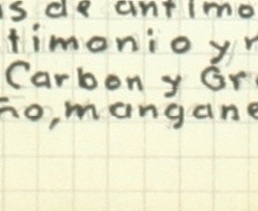 s de antimo
timonio y
Carbon y Gr
ño, mangane